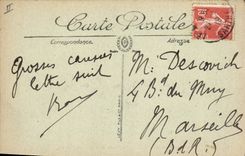 II
Carte Postale
Correspondance
Adresse
Grosses caresses
lettre suit
M. Descovich
4 Bd du Muy
Marseille
(B.d.R.)